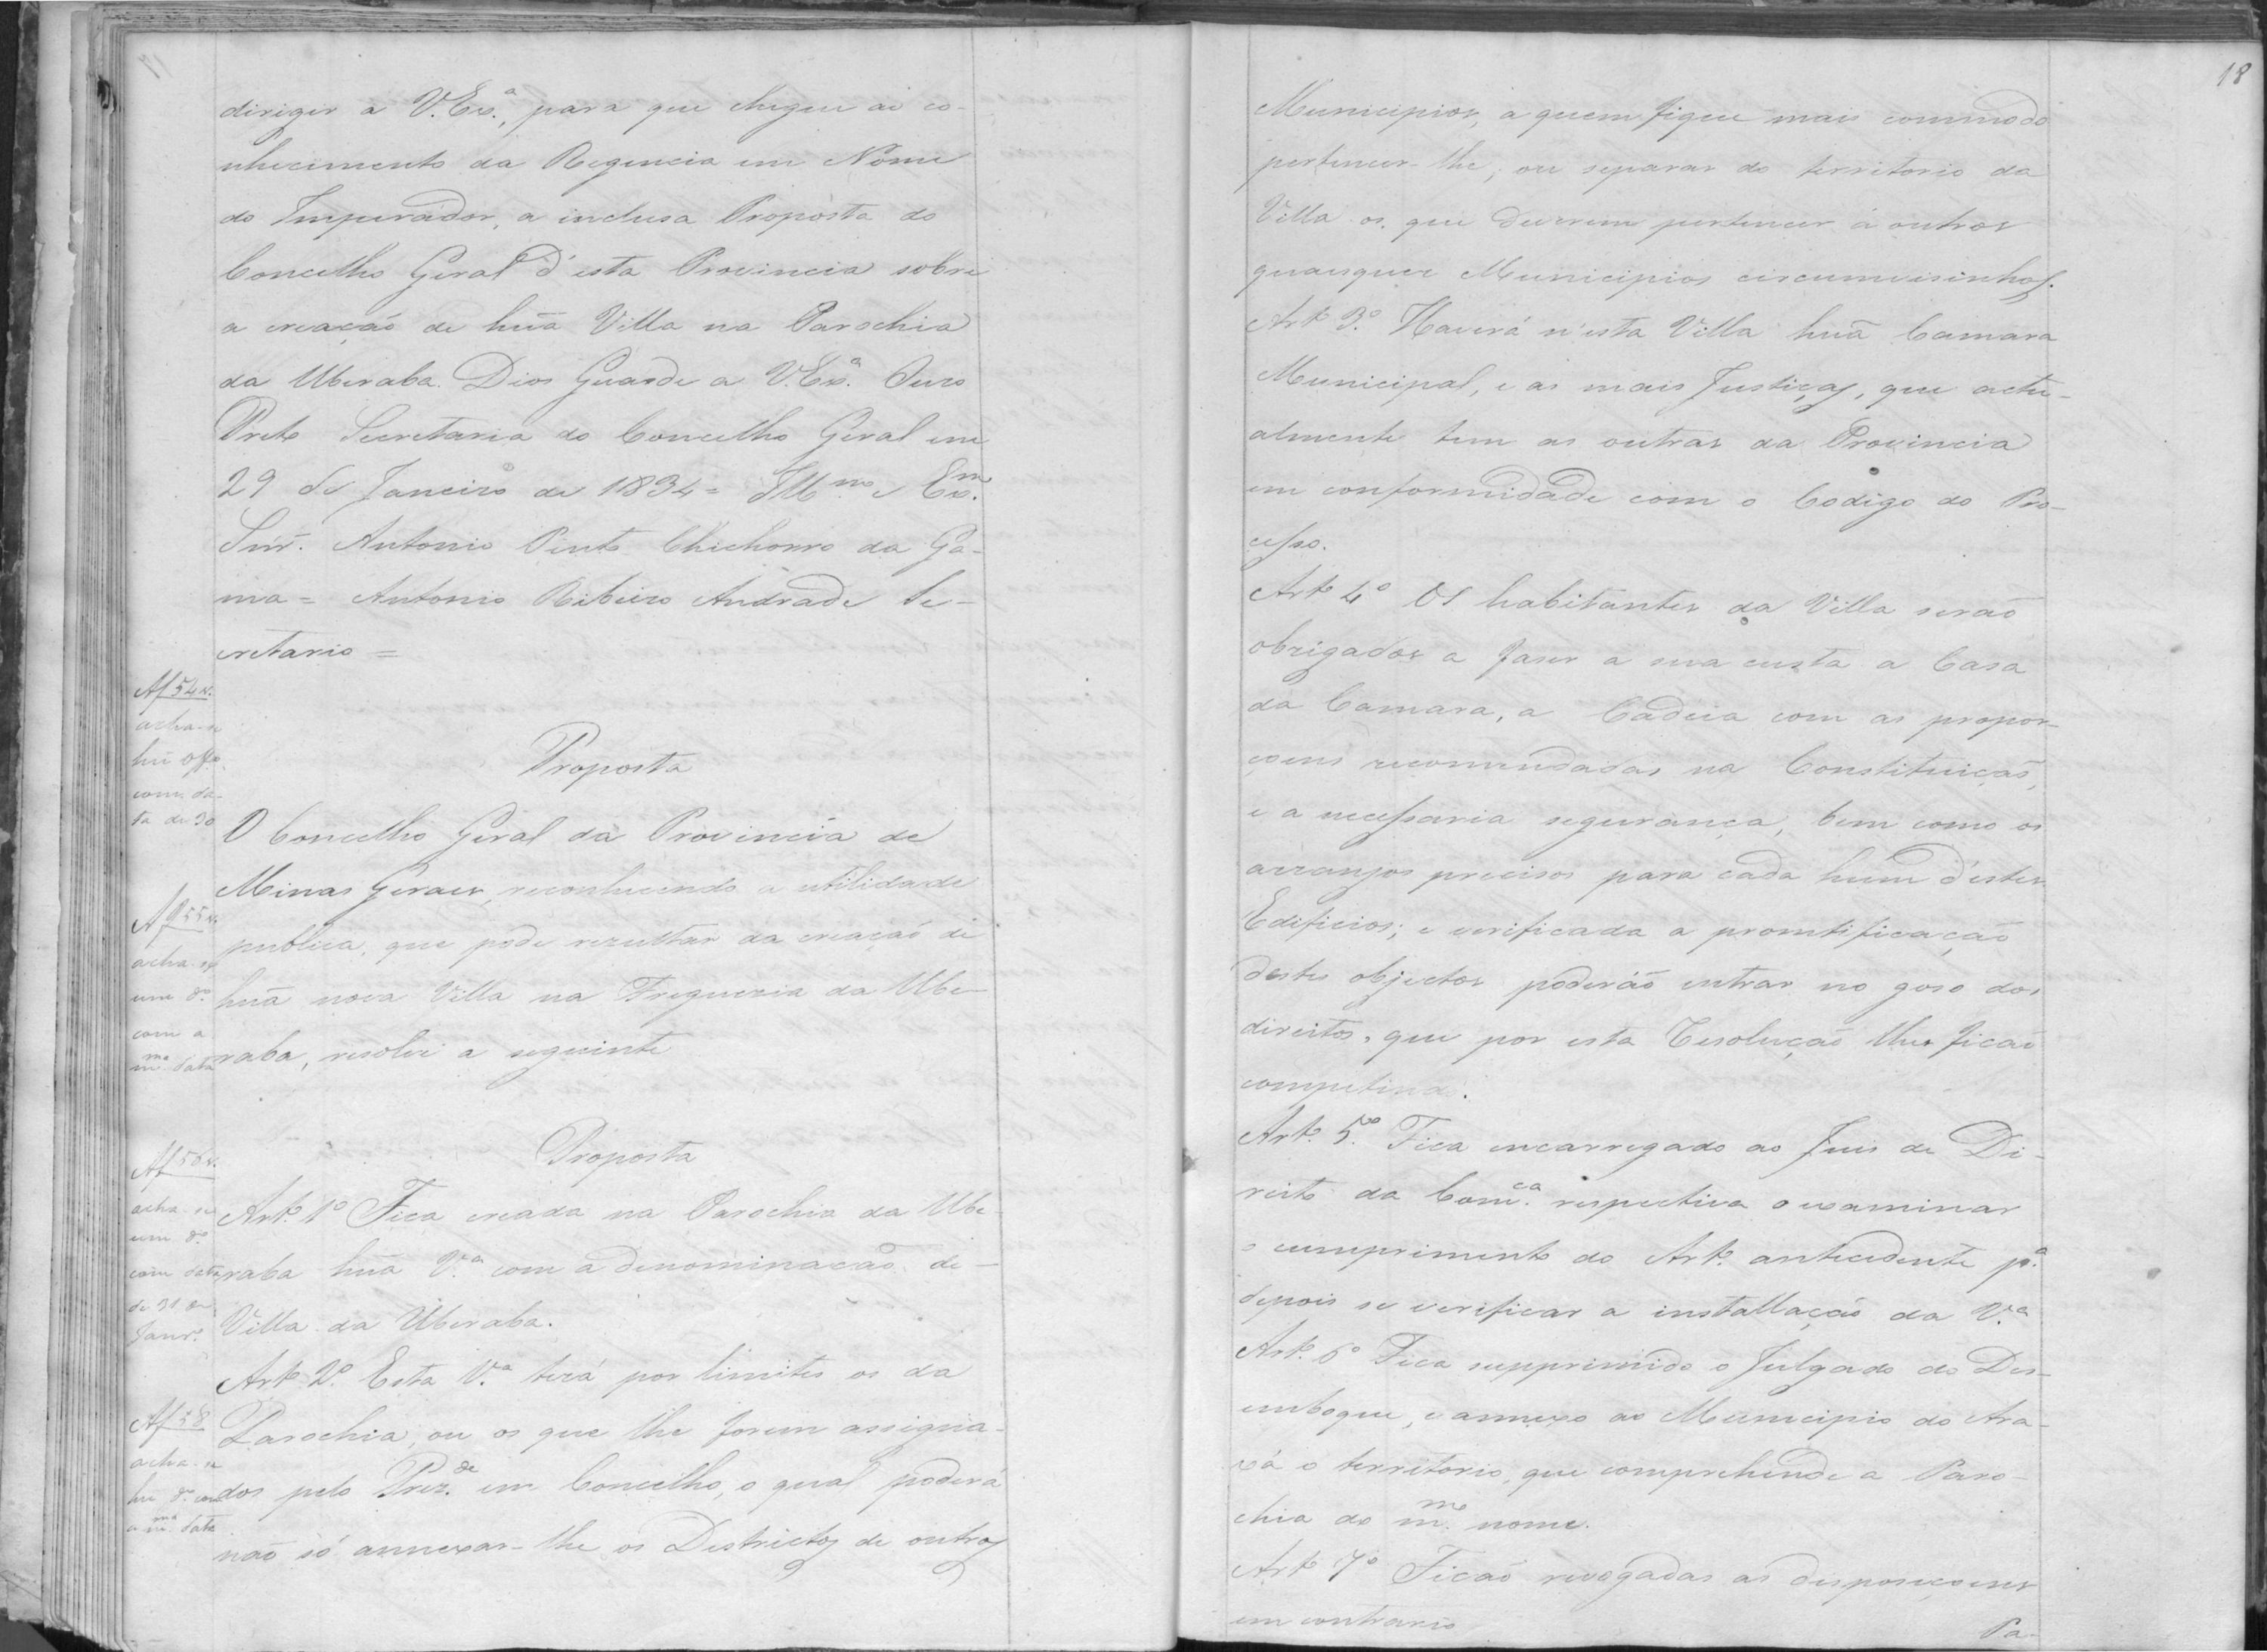 dirigir a V. Ex.ª, para que chegue ao co-
nhecimento da Regencia em Nome
do Imperador, a inclusa Proposta do
Concelho Geral d'esta Provincia sobre
a creação de huã Villa na Parochia
da Uberaba. Dios Guarde a V. Ex.ª Ouro
Preto Secretaria do Concelho Geral em
29 de Janeiro de 1834 = Illmº e Exmº
Snr. Antonio Pinto Chichorro da Ga-
ma = Antonio Ribeiro Andrade Se-
cretario =
Af 54 v.
acha-se
hũ offº
com da-
ta de 30
Af 55 v.
acha-se
um dº
com a
mma data
Af 56 v.
acha-se
um dº
com data
de 31 de
Janrº
Af 58
acha-se
hũ dº com
a mma data
Proposta
O Concelho Geral da Provincia de
Minas Geraes, reconhecendo a utilidade
publica, que pode rezultar da creação de
huã nova Villa na Freguezia da Ube-
raba, resolve a seguinte
Proposta
Artº 1º Fica creada na Parochia da Ube-
raba huã Vª com a denominacaõ de
Villa da Uberaba.
Artº 2º Esta Vª terá por limites os da
Parochia, ou os que lhe forem assigna-
dos pelo Prezde em Concelho, o qual poderá
naõ só annexar-lhe os Districtos de outros
18
Municipios, a quem fique mais commodo
pertencer-lhe, ou separar do territorio da
Villa os que deverem pertencer á outros
quaesquer Municipios circumvisinhos.
Artº 3º Haverá n'esta Villa huã Camara
Municipal, e as mais Justiças, que actu-
almente tem as outras da Provincia
em conformidade com o Codigo do Pro-
cesso.
Artº 4º Os habitantes da Villa seraõ
obrigados a faser a sua custa a Casa
da Camara, a Cadeia com as propor-
çoens recomendadas na Constituiçaõ,
e a necessaria segurança, bem como os
arranjos precisos para cada hum d'estes
Edificios; e verificada a promtificaçaõ
destes objectos poderáõ entrar no goso dos
direitos, que por esta Resoluçaõ lhes ficaõ
competindo.
Artº 5º Fica encarregado ao Juis de Di-
reito da Comca respectiva o examinar
o cumprimento do Artº antecedente pª
depois se verificar a installaçaõ da Vª
Artº 6º Fica supprimido o Julgado do Des-
emboque, e annexo ao Municipio do Ara-
xá o territorio, que comprehende a Paro-
chia do mmo nome.
Artº 7º Ficaõ revogadas as disposiçoens
em contrario
Pa-